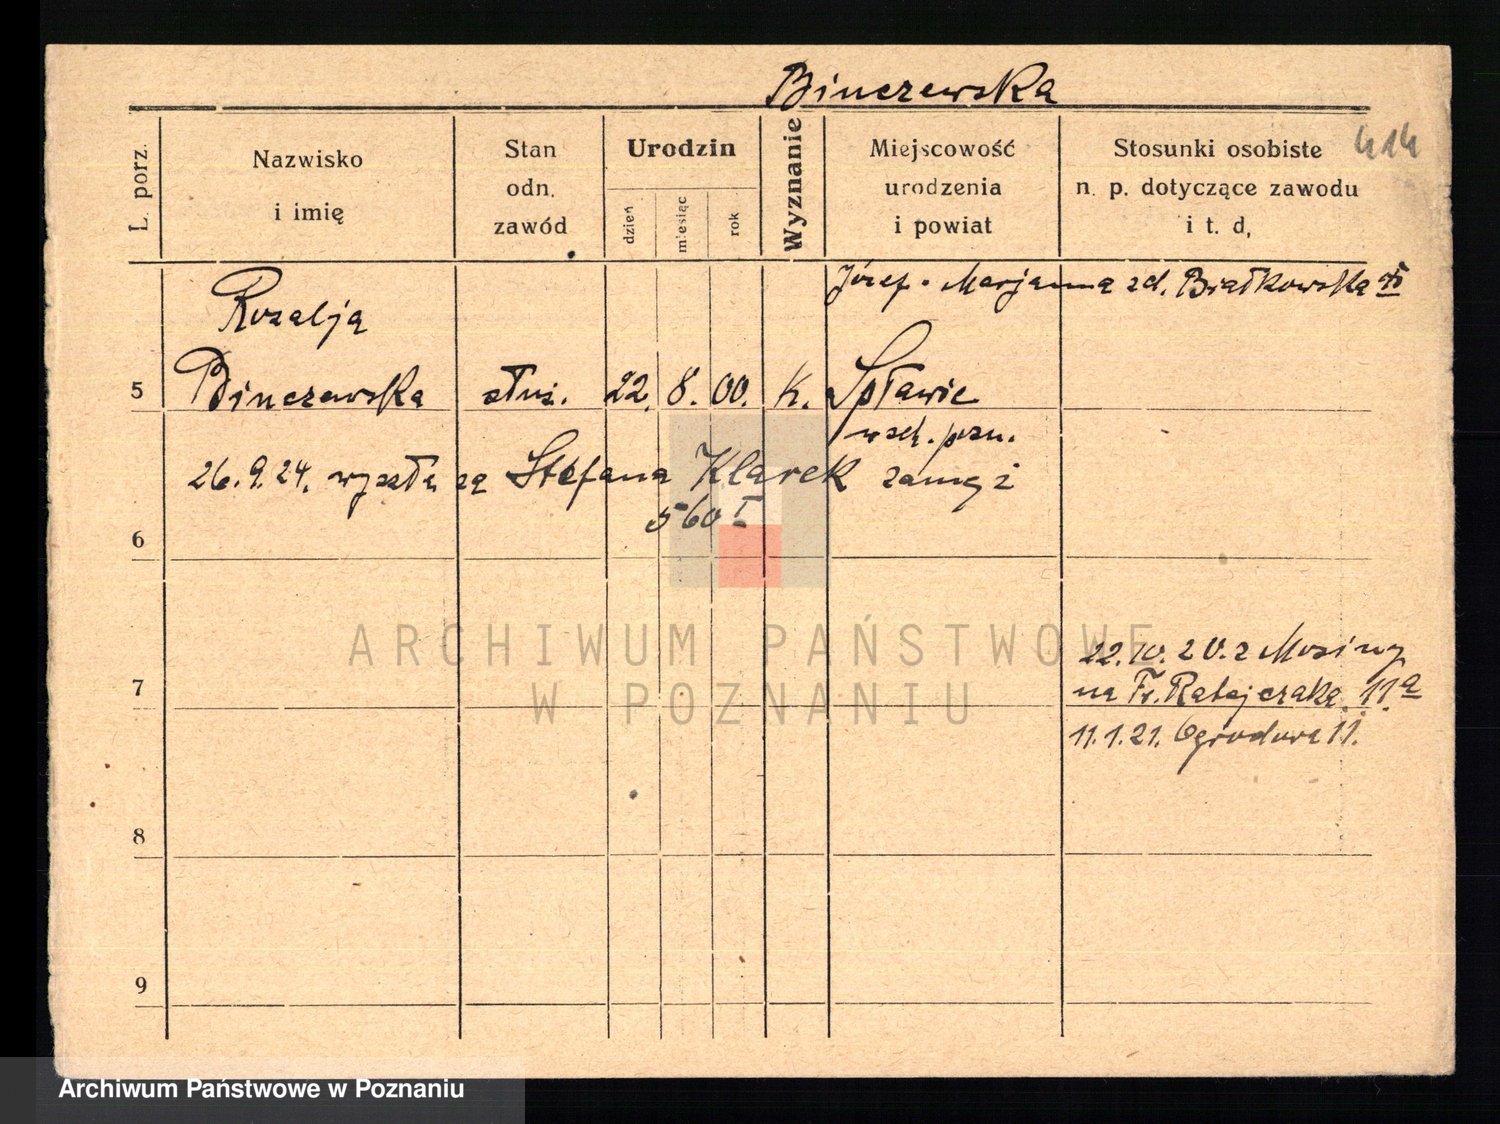 Binczewska
414
L. porz.
Nazwisko
i imię
Stan
odn.
zawód
Urodzin
dzień
miesiąc
rok
Wyznanie
Miejscowość
urodzenia
i powiat
Stosunki osobiste
n. p. dotyczące zawodu
i t. d,
Józef - Marjanna zd. Białkowska
Rozalja
5 Binczewska służ. 22. 8. 00. K. Spławie
wsch. pozn.
26.9.24. wyszła za Stefana Klarek zamąż
560 I
6
22.10.20. z Mosiny
7 na Fr. Ratajczaka 11.a
11.1.21. Ogrodowa 11.
8
9
ARCHIWUM PAŃSTWOWE
W POZNANIU
Archiwum Państwowe w Poznaniu